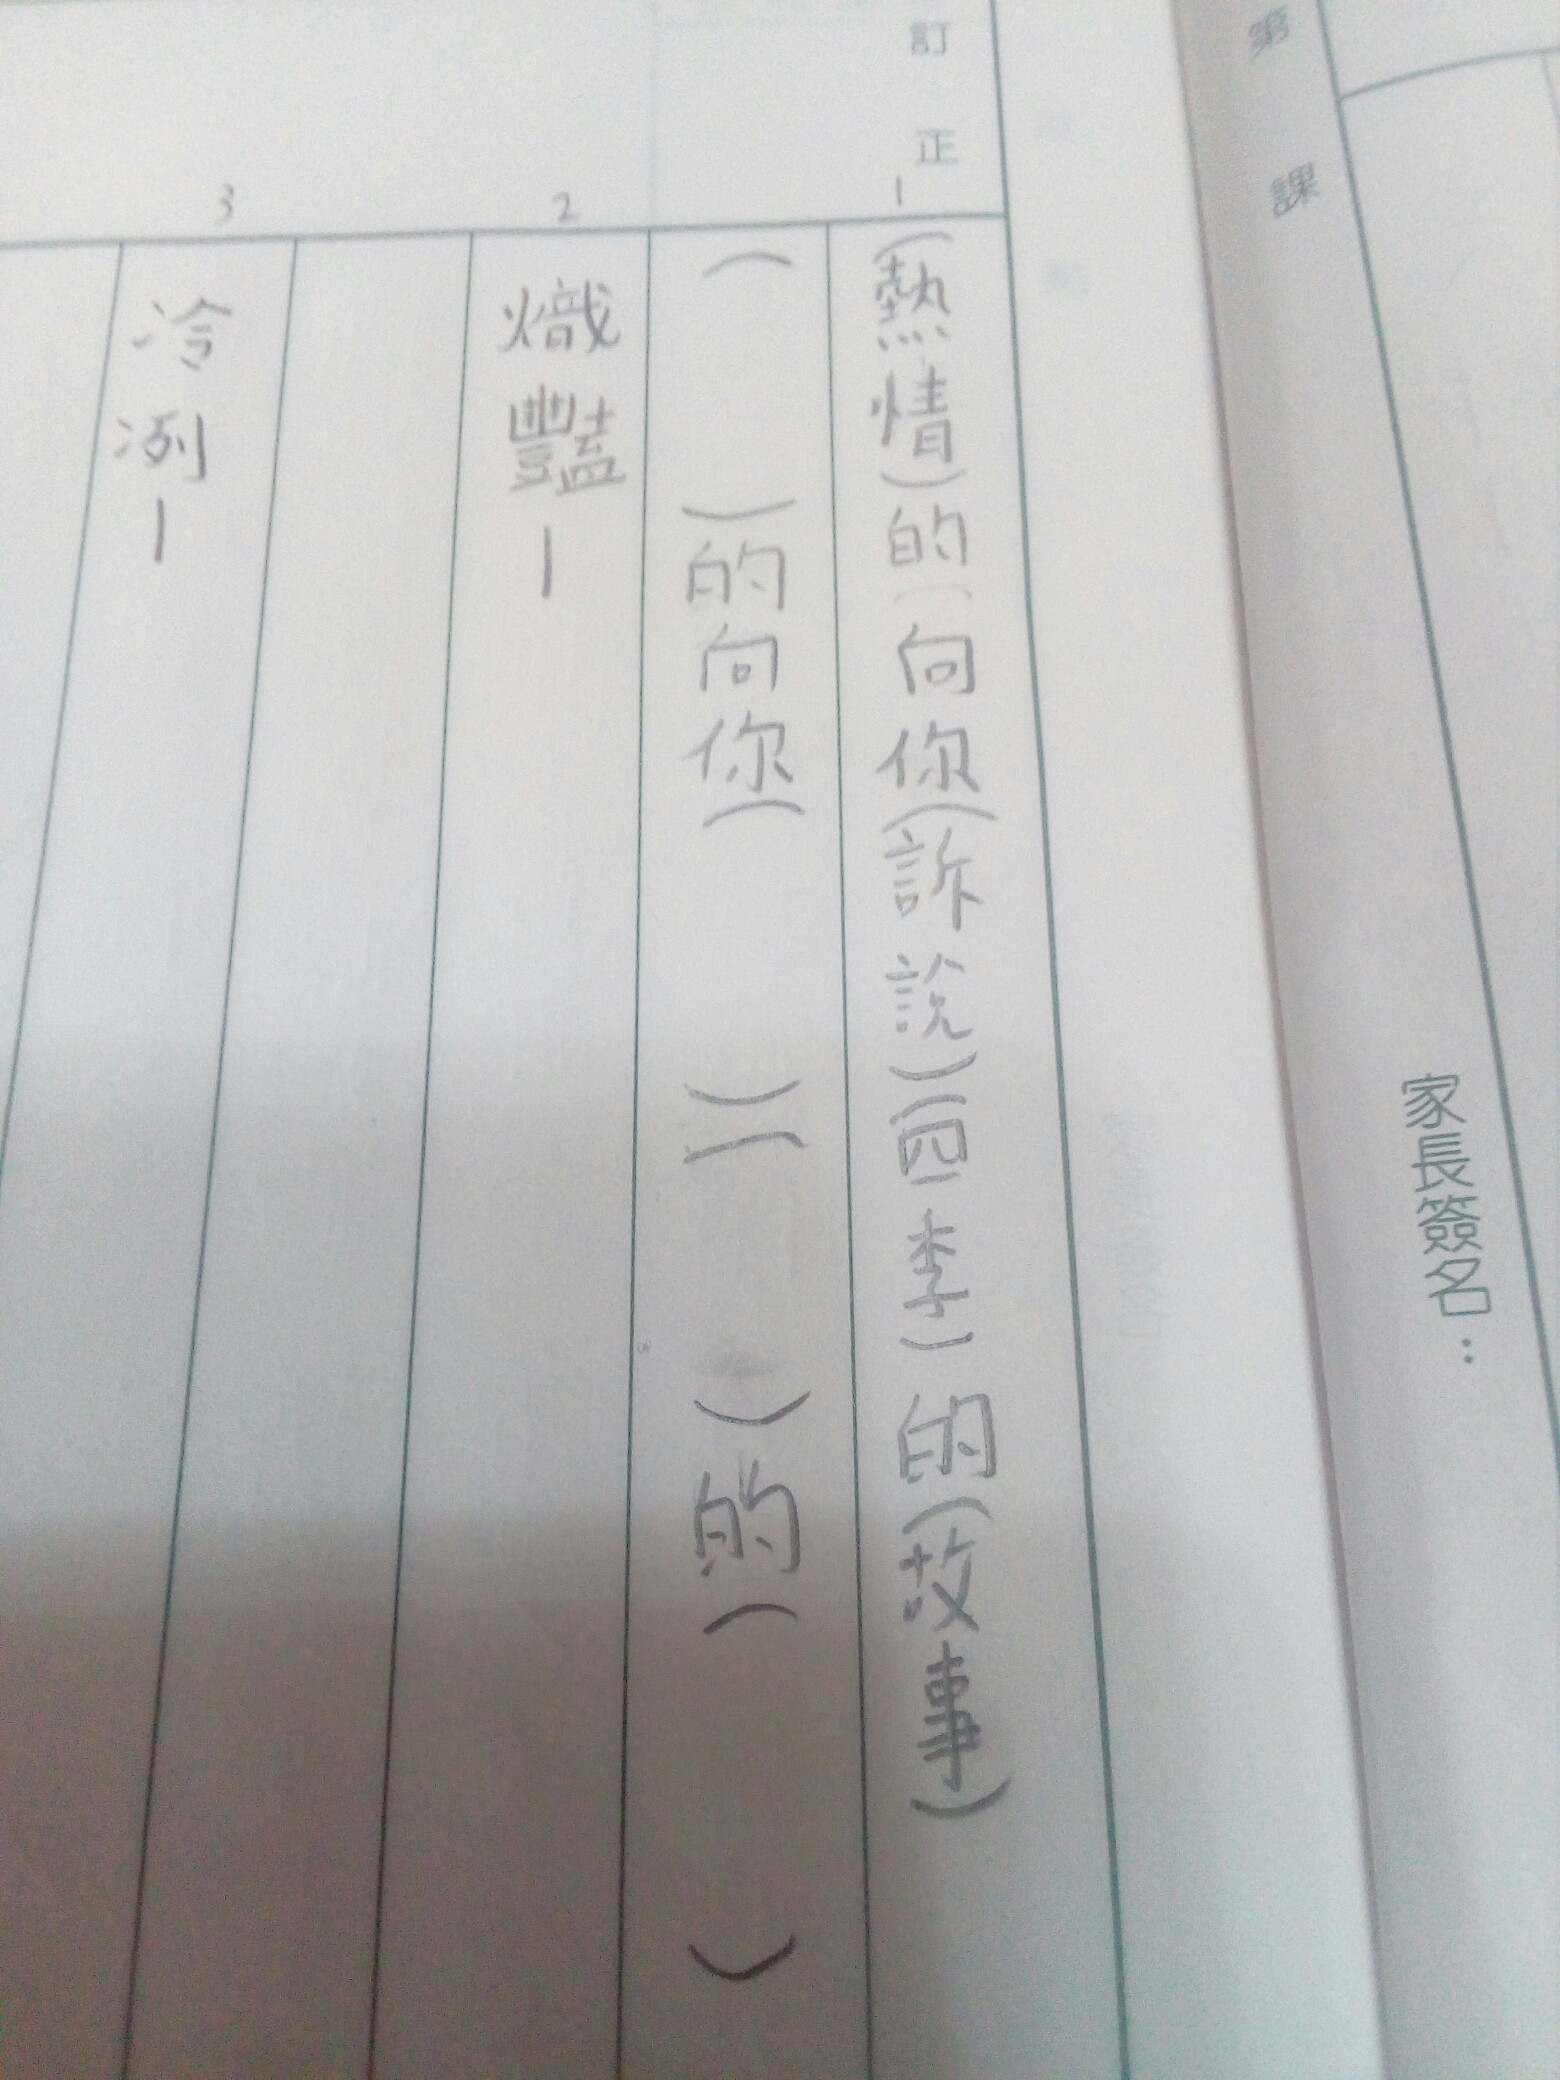 第 課
家長簽名：
訂正
1
(熱情)的(向你(訴說)(四季)的(故事)
( )的向你( )( )的( )
2
熾豔—
3
冷冽—